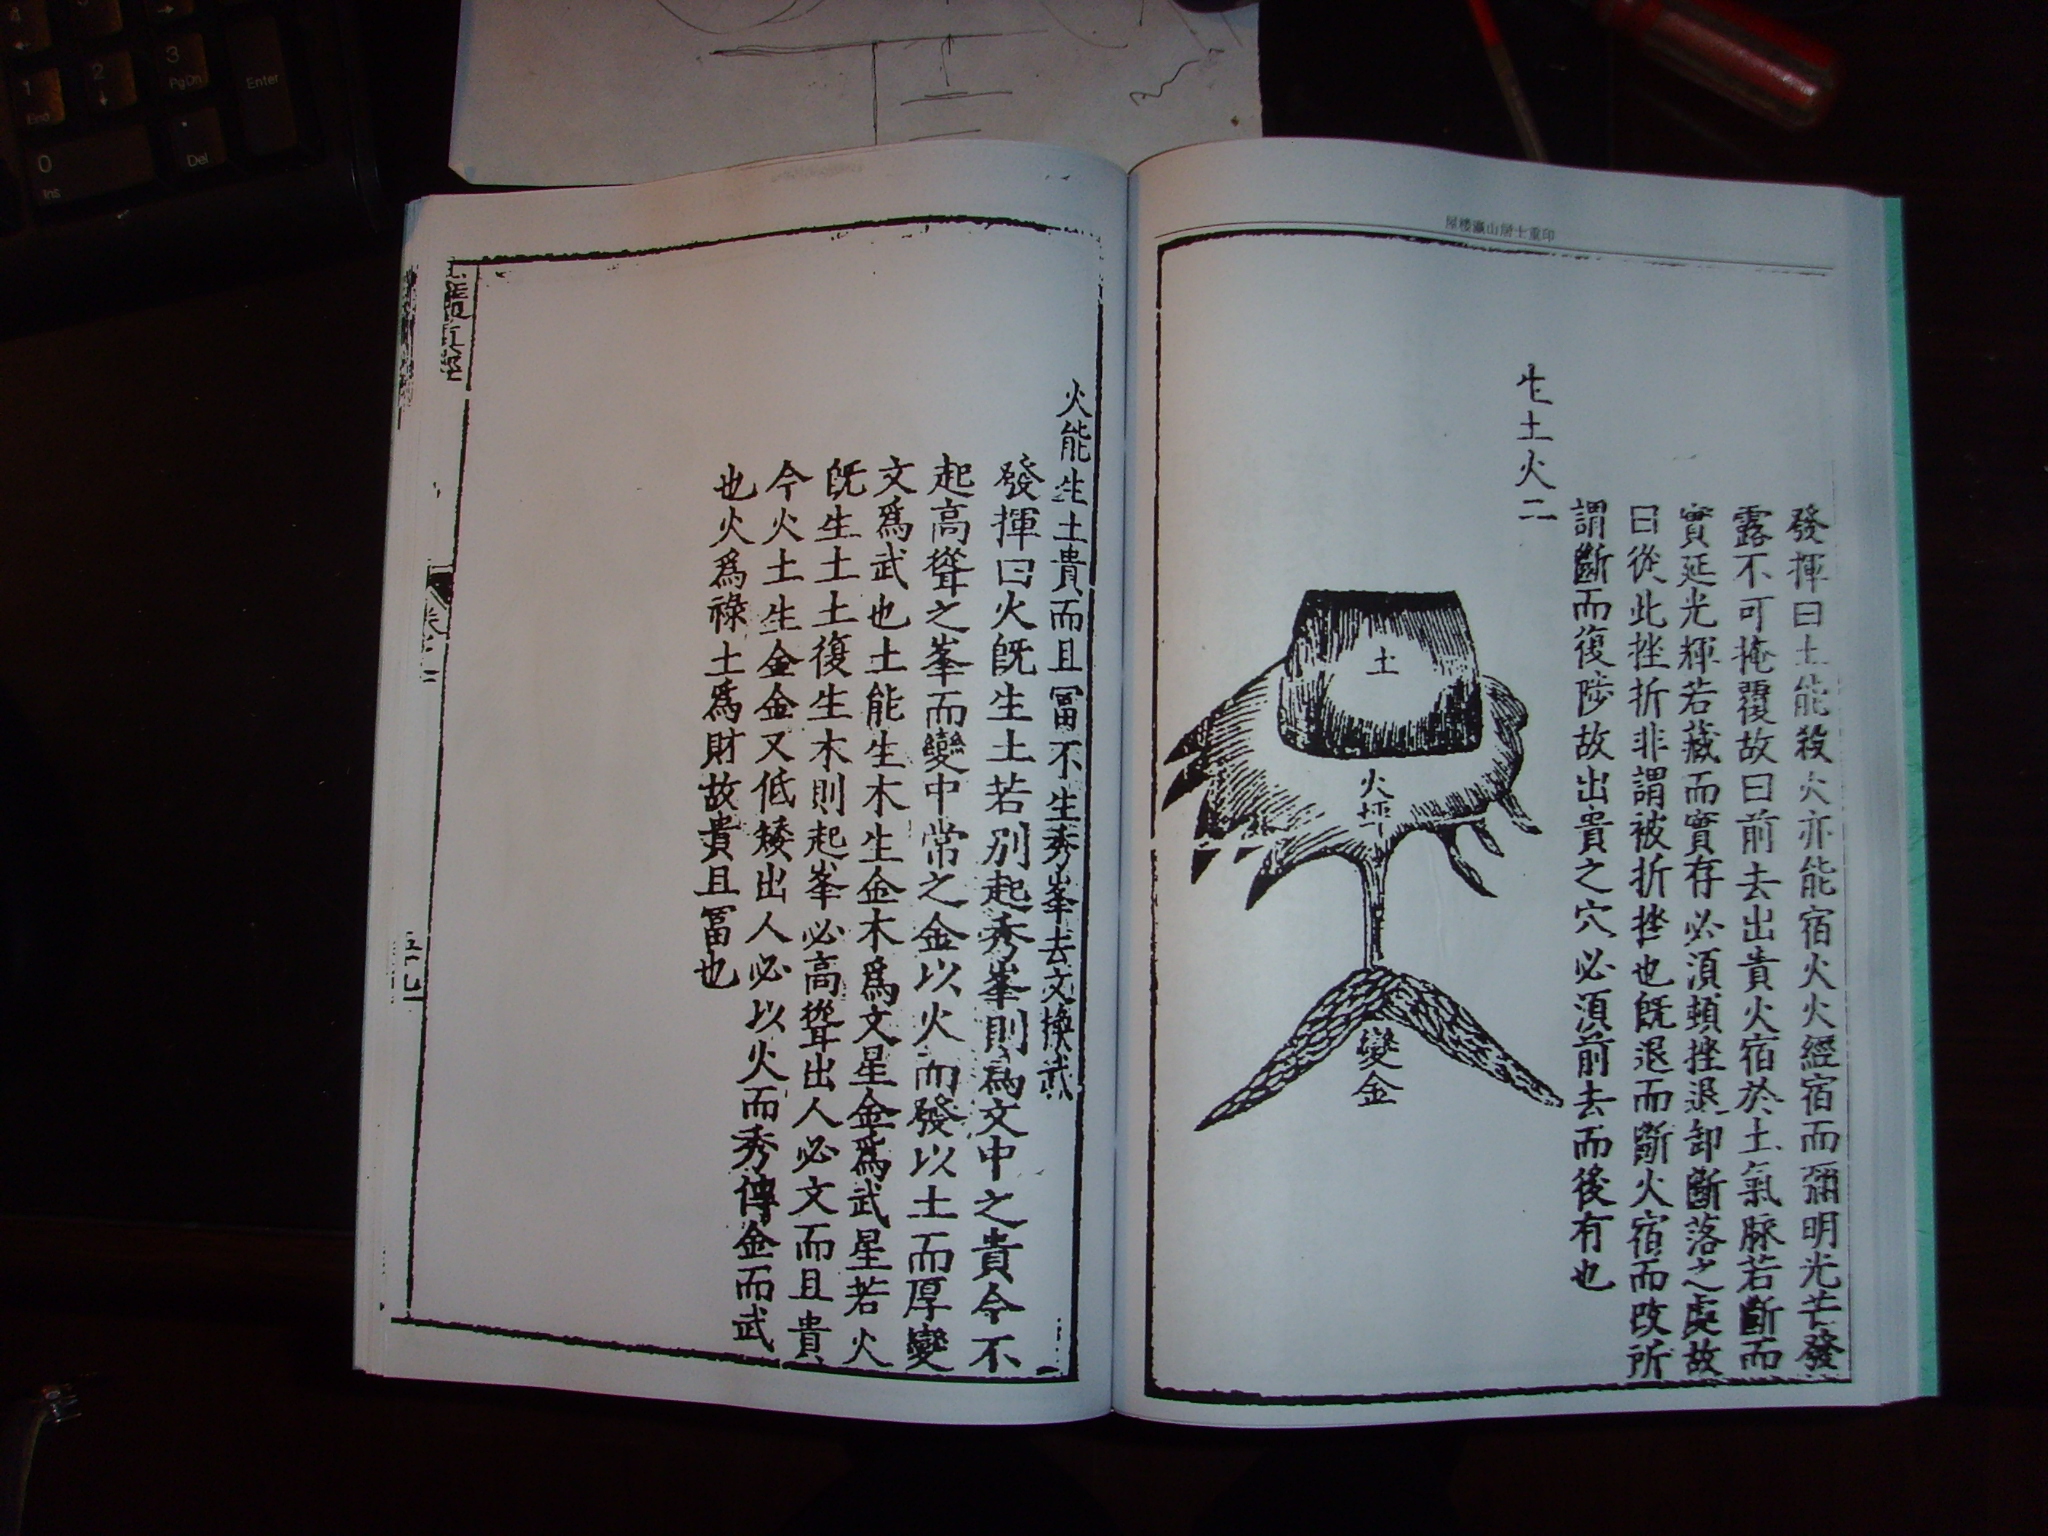 屋楼灜山居士重印
發揮曰土能殺火亦能宿火火經宿而彌明光芒發
露不可掩覆故曰前去出貴火宿於土氣脉若斷而
實延光輝若藏而實存必須頓挫退卸斷落之處故
曰從此挫折非謂被折挫也旣退而斷火宿而改所
謂斷而復陟故出貴之穴必須前去而後有也
二火土生
土
火坪
變金
火能生土貴而且冨不生秀峯去文換武
發揮曰火旣生土若別起秀峯則爲文中之貴今不
起高聳之峯而變中常之金以火而發以土而厚變
文爲武也土能生木生金木爲文星金爲武星若火
旣生土土復生木則起峯必高聳出人必文而且貴
今火土生金金又低矮出人必以火而秀傳金而武
也火爲祿土爲財故貴且冨也
真經
五十九
4
1 End
2
3 PgDn
Enter
0 Ins
Del